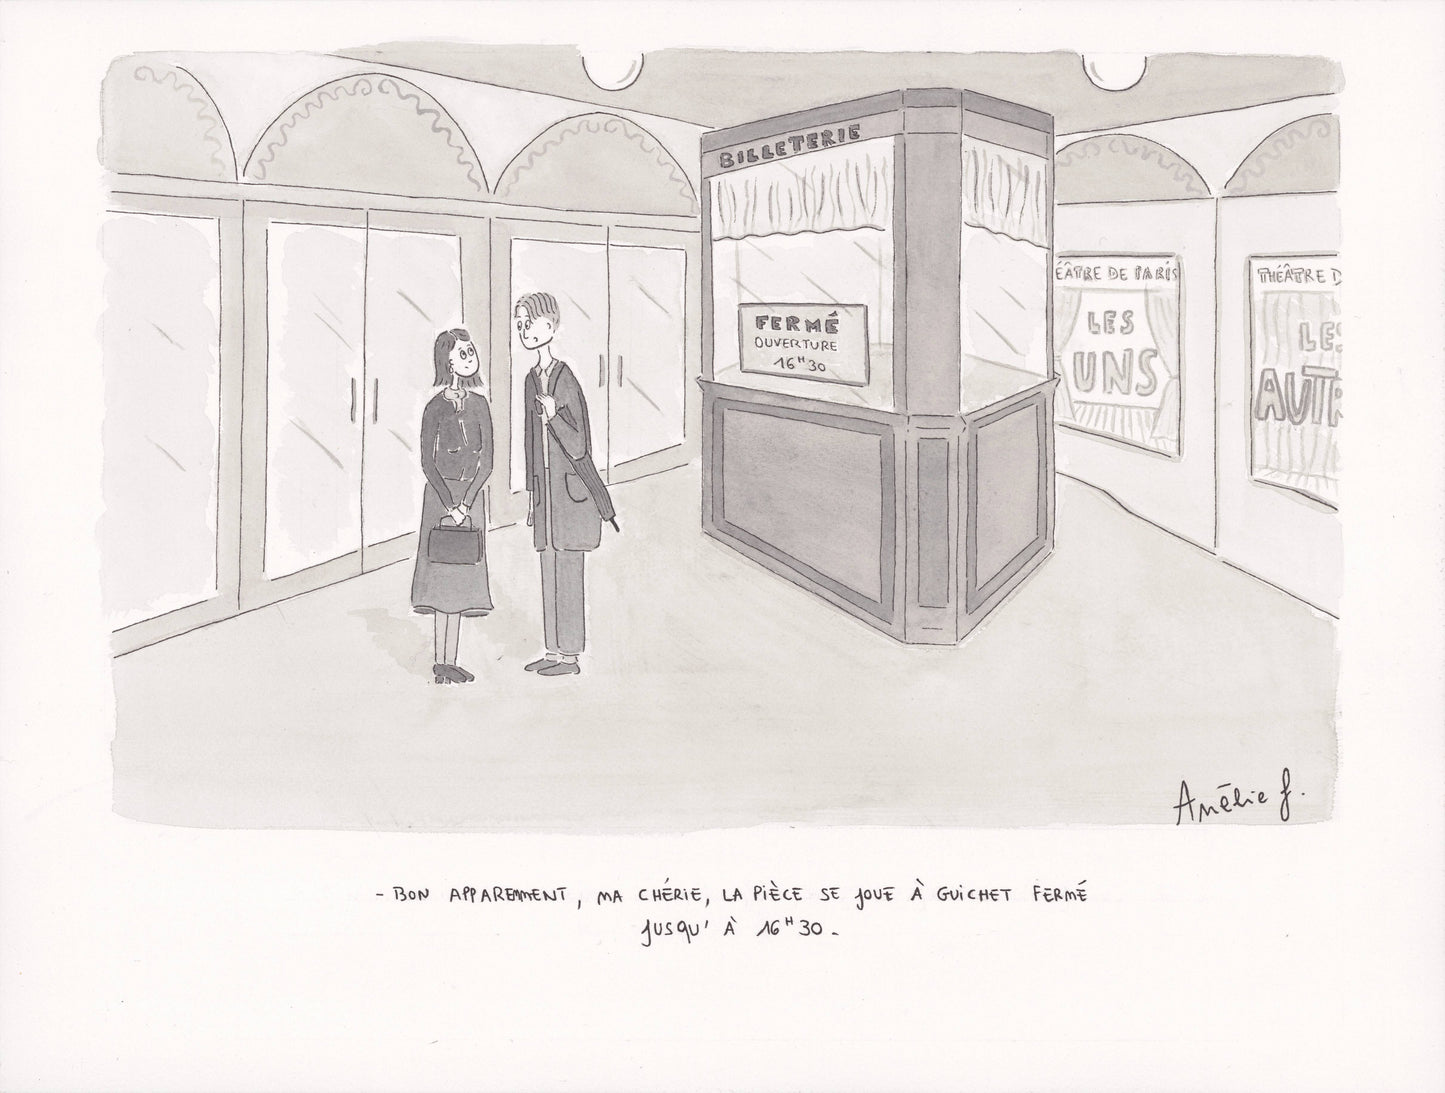 BILLETERIE
FERMÉ
OUVERTURE
16H30
ÉÂTRE DE PARIS
LES
UNS
THÉÂTRE D
LES
AUTR
Amélie f.
- BON APPAREMMENT, MA CHÉRIE, LA PIÈCE SE JOUE À GUICHET FERMÉ
JUSQU'À 16H30.